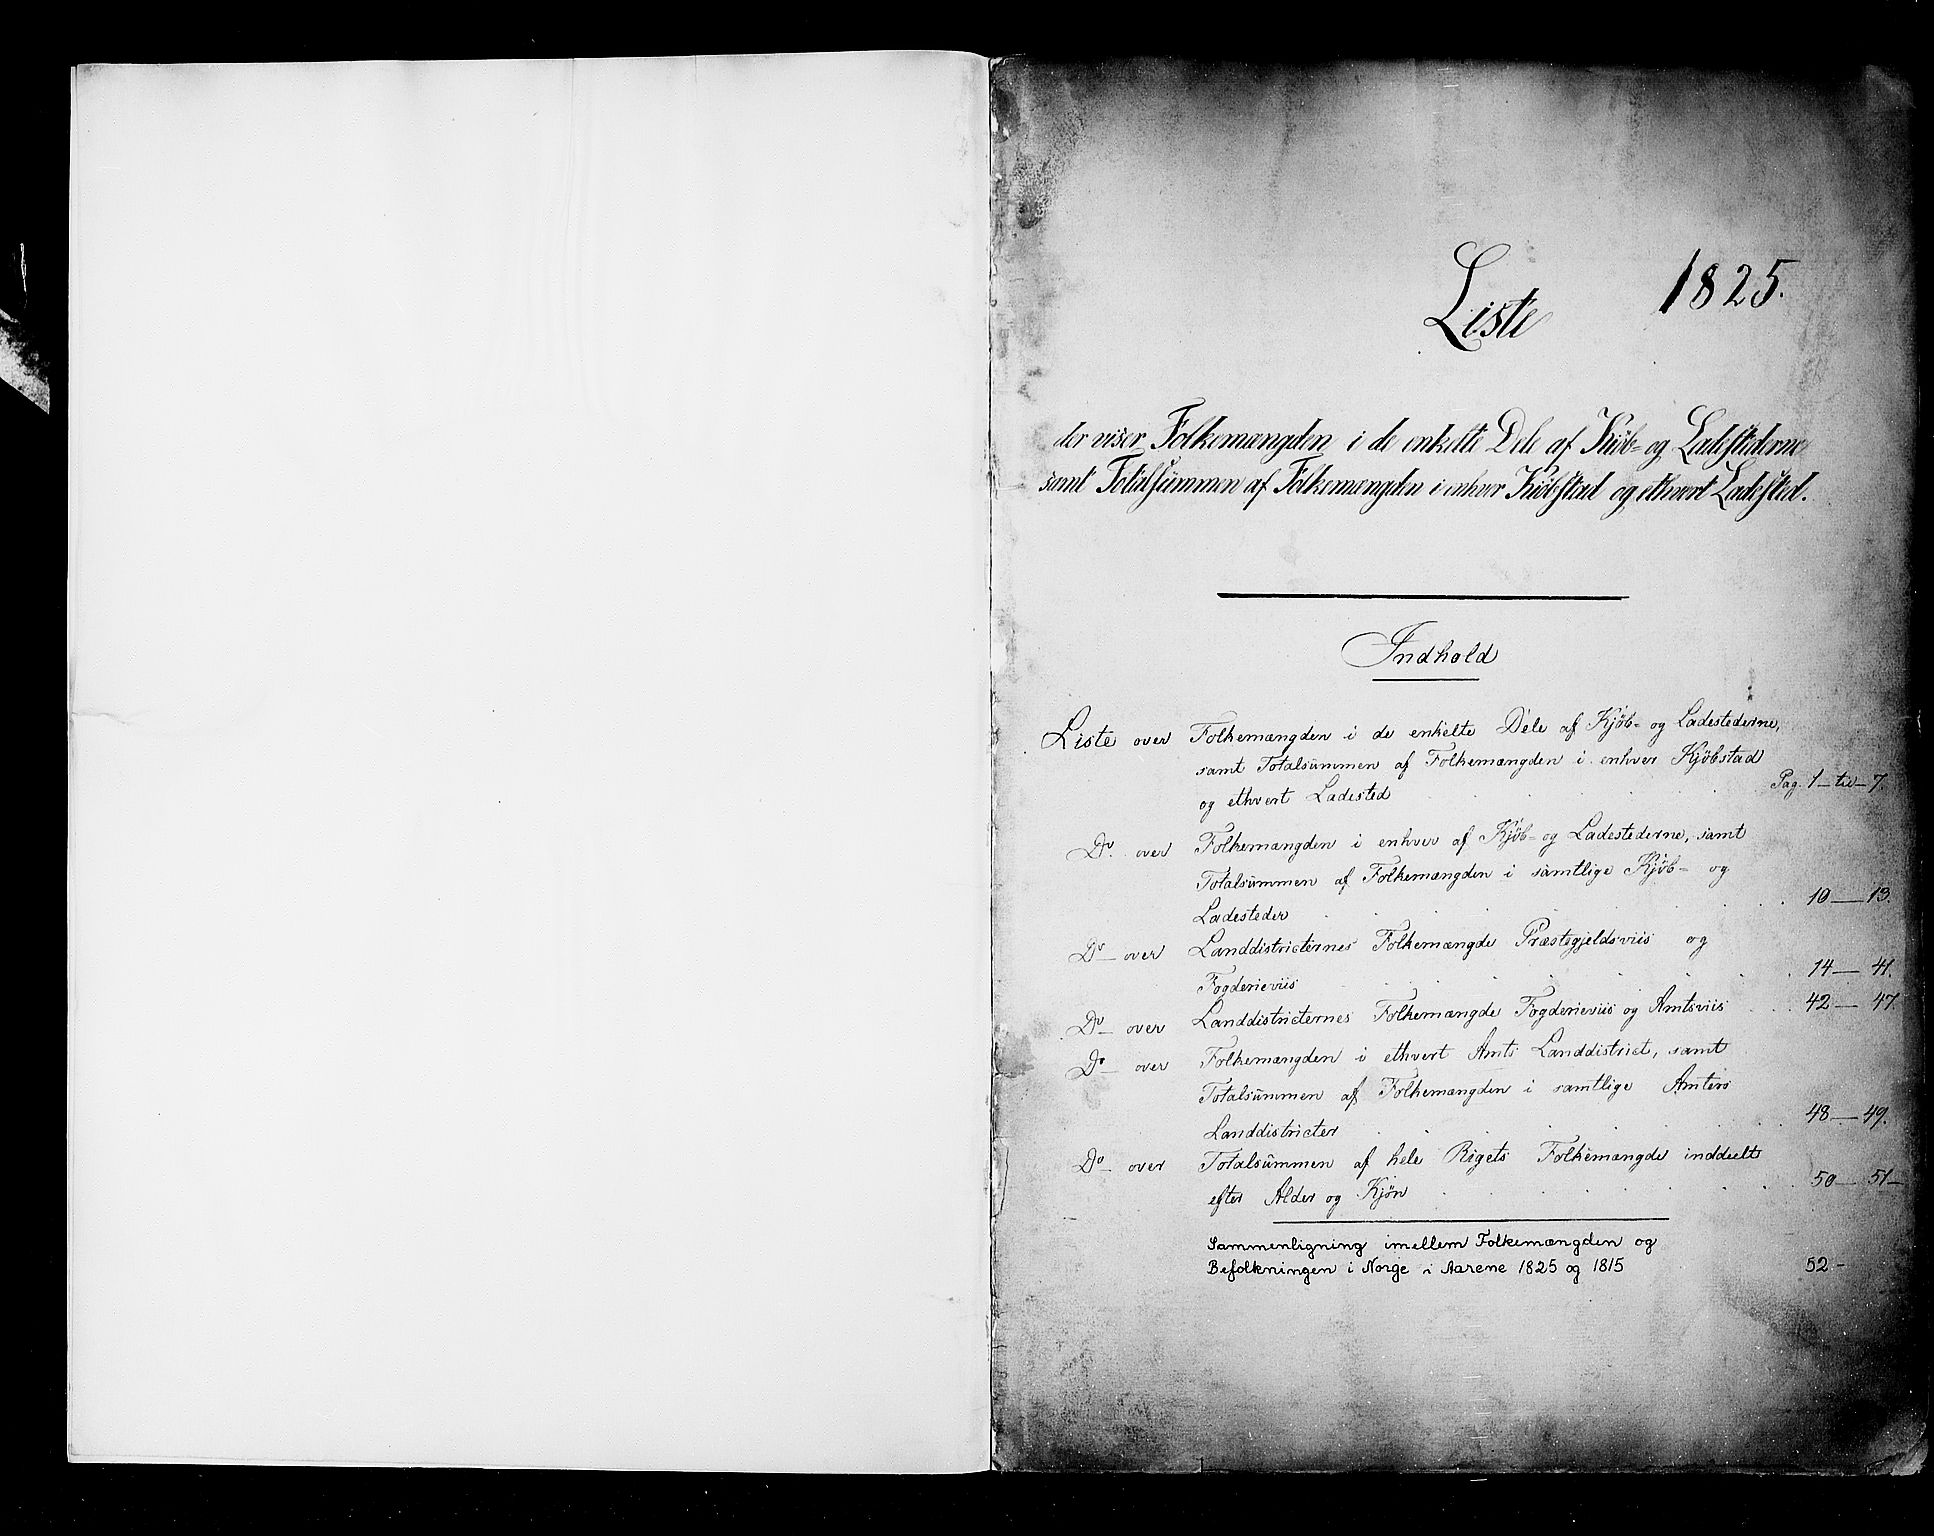 1825.
Liste
der viser Folkemængden i de enkelte Dele af Kiøb= og Ladestederne
samt Totalsummen af Folkemængden i enhver Kiøbstad og ethvert Ladested.
Indhold
Liste over Folkemængden i de enkelte Dele af Kjøb= og Ladestederne,
samt Totalsummen af Folkemængden i enhver Kjøbstad
og ethvert Ladested . . . . . Pag. 1 — til — 7.
Do. over Folkemængden i enhver af Kjøb= og Ladestederne, samt
Totalsummen af Folkemængden i samtlige Kjøb= og
Ladesteder . . . . . . . 10 — 13.
Do— over Landdistricternes Folkemængde Præstegjeldsviis og
Fogderieviis . . . . . . . 14 — 41.
Do— over Landdistricternes Folkemængde Fogderieviis og Amtsviis . . . 42 — 47.
Do— over Folkemængden i ethvert Amts Landdistrict, samt
Totalsummen af Folkemængden i samtlige Amters
Landdistricter . . . . . . . 48 — 49.
Do— over Totalsummen af hele Rigets Folkemængde inddeelt
efter Alder og Kjøn . . . . . . . 50 — 51 —
Sammenligning imellem Folkemængden og
Befolkningen i Norge i Aarene 1825 og 1815 52 -